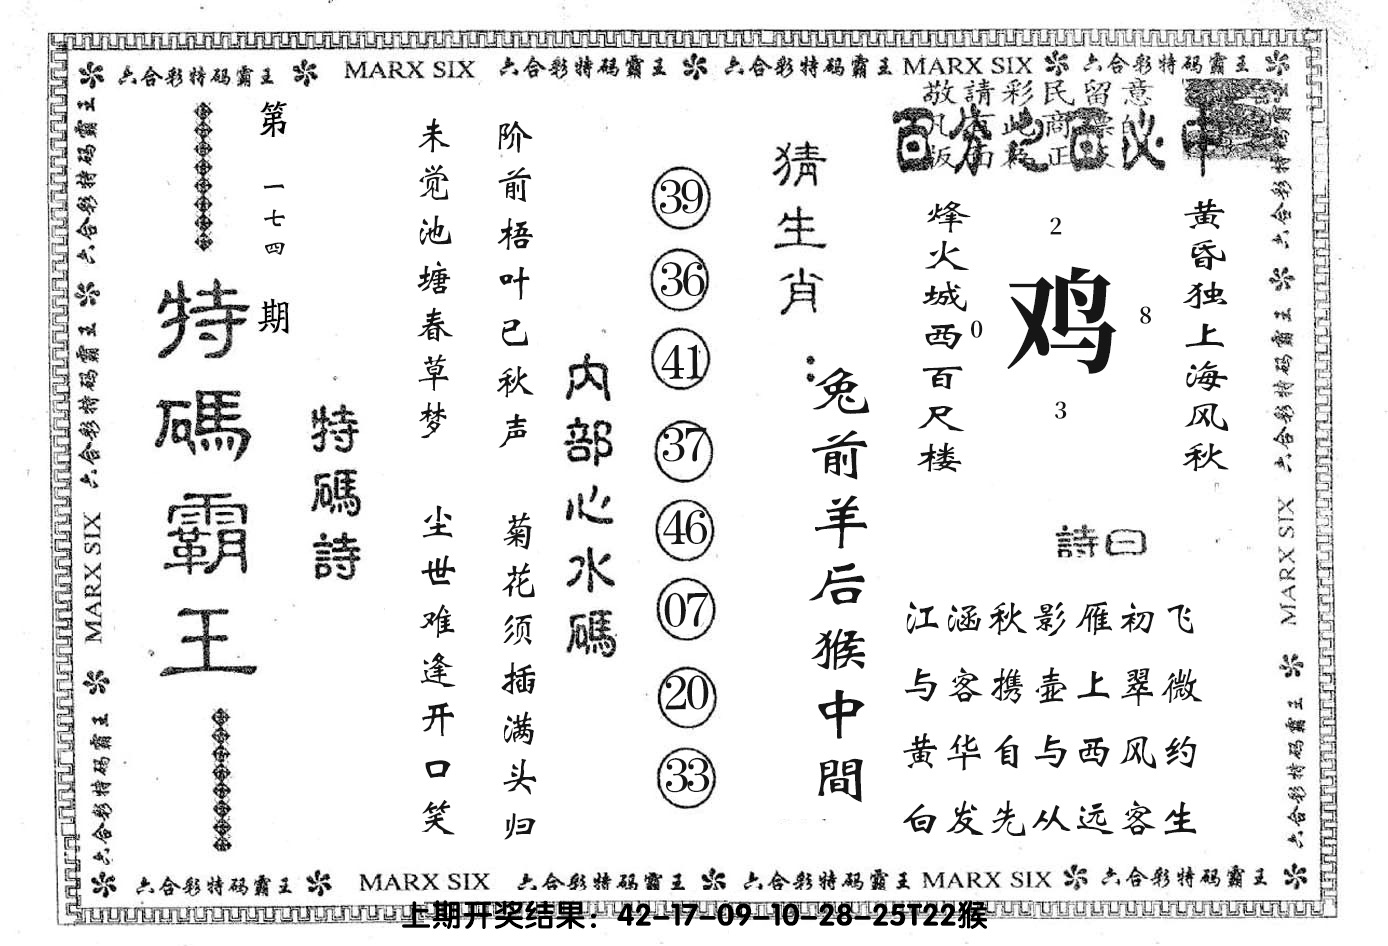 六合彩特码霸王 MARX SIX 六合彩特码霸王 六合彩特码霸王 MARX SIX 六合彩特码霸王
敬請彩民留意
百分之百必中
黄昏独上海风秋
烽火城西百尺楼
2
0
鸡
8
3
詩曰
江涵秋影雁初飞
与客携壶上翠微
黄华自与西风约
白发先从远客生
猜生肖：
兔前羊后猴中間
39
36
41
37
46
07
20
33
内部心水碼
阶前梧叶已秋声
菊花须插满头归
未觉池塘春草梦
尘世难逢开口笑
特碼詩
第一七四期
特碼霸王
六合彩特码霸王 六合彩特码霸王 MARX SIX 六合彩特码霸王
六合彩特码霸王 六合彩特码霸王 MARX SIX 六合彩特码霸王
六合彩特码霸王 MARX SIX 六合彩特码霸王 六合彩特码霸王 MARX SIX 六合彩特码霸王
上期开奖结果：42-17-09-10-28-25T22猴